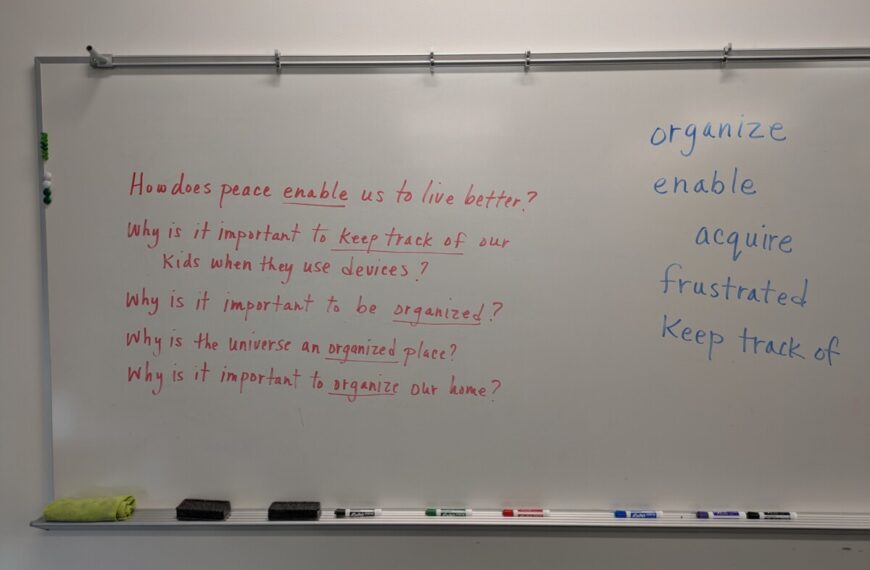 How does peace enable us to live better?
Why is it important to keep track of our
kids when they use devices?
Why is it important to be organized?
Why is the universe an organized place?
Why is it important to organize our home?
organize
enable
acquire
frustrated
Keep track of